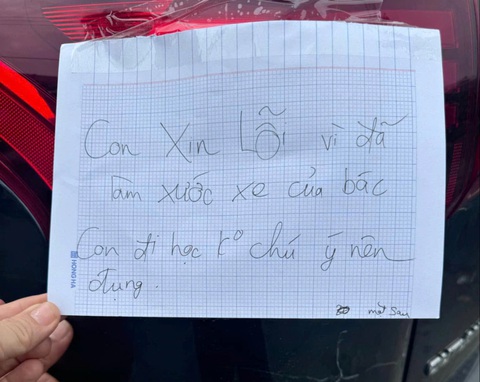 Con Xin Lỗi vì đã
làm xước xe của bác
Con đi học k° chú ý nên
đụng.
HONG HA
mặt sau